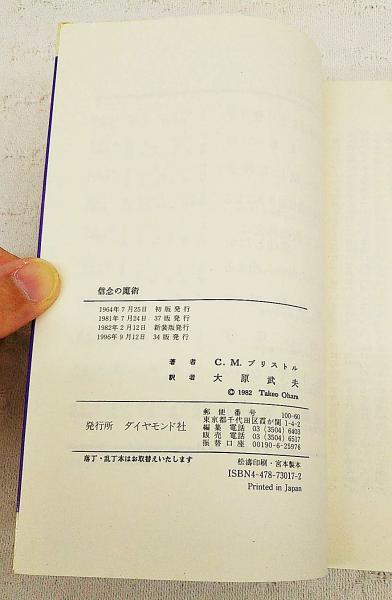 信念の魔術
1964年7月25日 初版発行
1981年7月24日 37版発行
1982年2月12日 新装版発行
1996年9月12日 34版発行
著者 C.M.ブリストル
訳者 大原武夫
© 1982 Takeo Ohara
発行所 ダイヤモンド社
郵便番号 100-60
東京都千代田区霞が関1-4-2
編集電話 03(3504)6403
販売電話 03(3504)6517
振替口座 00190-6-25976
落丁・乱丁本はお取替えいたします
松濤印刷・宮本製本
ISBN4-478-73017-2
Printed in Japan